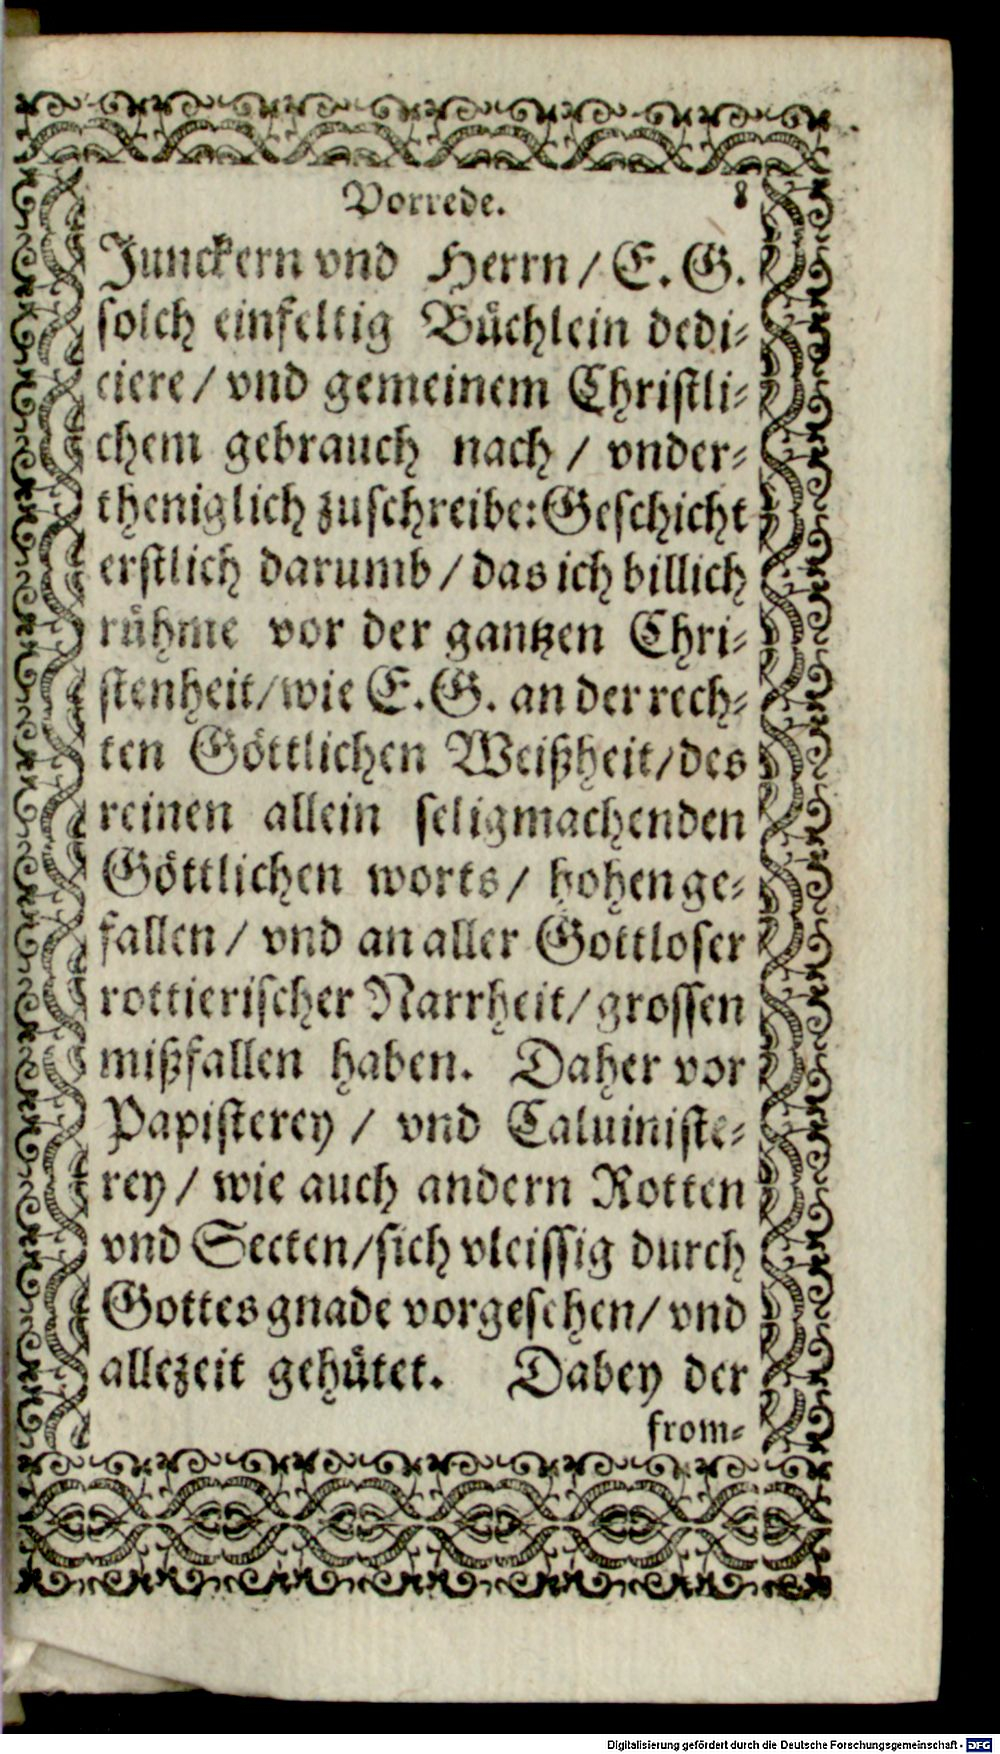 Vorrede. 8
Junckern vnd Herrn / E. G.
solch einfeltig Büchlein dedi-
ciere / vnd gemeinem Christli-
chem gebrauch nach / vnder-
theniglich zuschreibe: Geschicht
erstlich darumb / das ich billich
rühme vor der gantzen Chri-
stenheit / wie E. G. an der rech-
ten Göttlichen Weißheit / des
reinen allein seligmachenden
Göttlichen worts / hohen ge-
fallen / vnd an aller Gottloser
rottierischer Narrheit / grossen
mißfallen haben. Daher vor
Papisterey / vnd Caluiniste-
rey / wie auch andern Rotten
vnd Secten / sich vleissig durch
Gottes gnade vorgesehen / vnd
allezeit gehütet. Dabey der
from-
Digitalisierung gefördert durch die Deutsche Forschungsgemeinschaft - DFG